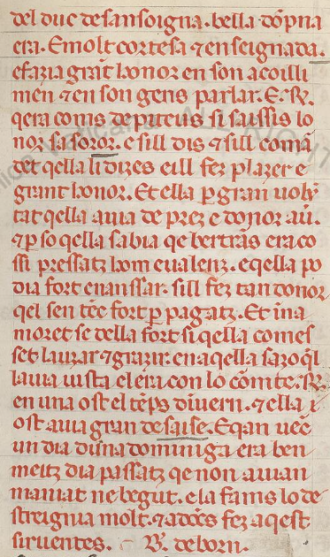 del duc de sansoigna. bella dõpna
era. E molt cortesa ⁊ enseignada.
e fazia grãt honor en son acoilli
men ⁊ en son gens parlar. E .R̃.
q era coms de piteus si saussis lo
nor sa soror. e sill dis ⁊ sill comã
det q ella li dizes e ill fez plazer e
grant honor. Et ella ꝑ gran uolũ
tat q ella auia de prez e donor au.
⁊ ꝑ so q ella sabia qe bertrãs era co
si pressatz hom e ualenz. e q ella po
dia fort enanssar. sill fez tan donor
qel sen tẽc fort ꝑ pagatz. Et ina
moret se della fort si q ella comes
set lauzar ⁊ grazir. en aqella sazo ql
lauia uista el era con lo cõmte .R̃.
en una ost el tẽps diuern. ⁊ ella i
ost auia gran desaise. E qan uec
un dia duna dominiga era ben
meitz dia passatz qe non auian
maniat ne begut. e la fams lo de
streignia molt. ⁊ adõcs fez aqest
siruentes. B̃. de born.